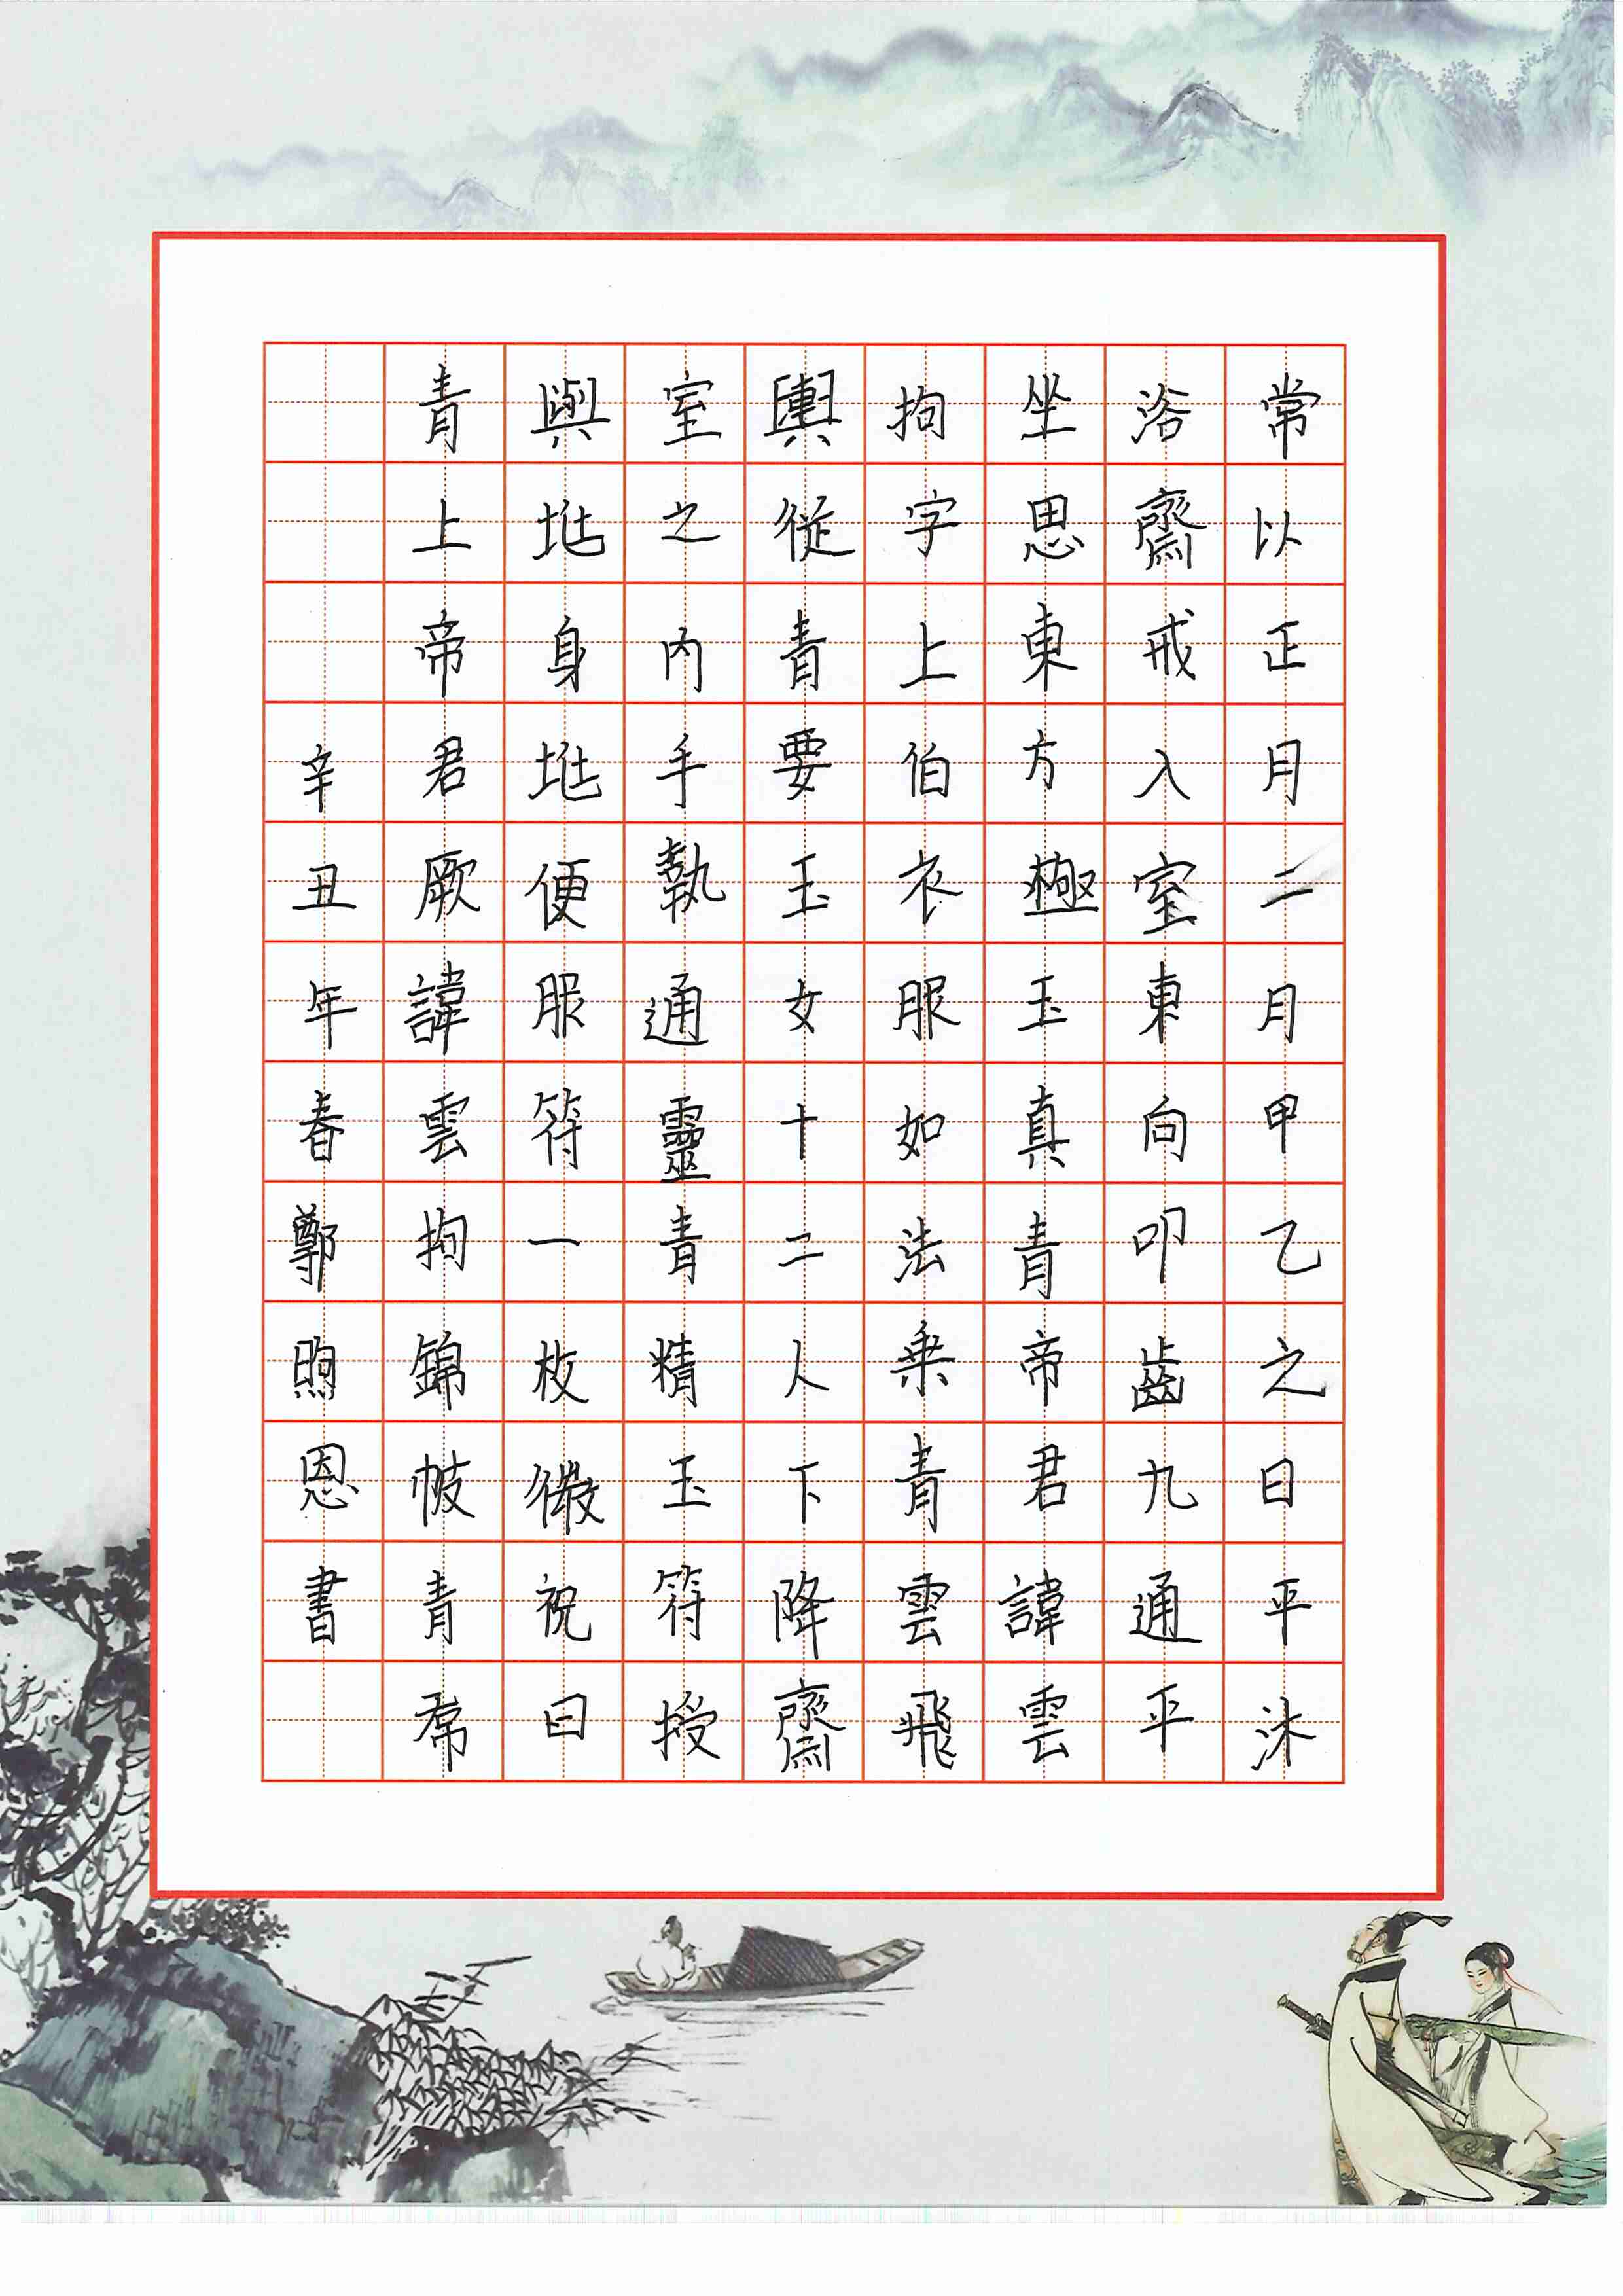 常以正月二月甲乙之日平沐
浴齋戒入室東向叩齒九通平
坐思東方極玉真青帝君諱雲
拘字上伯衣服如法乗青雲飛
輿従青要玉女十二人下降齋
室之內手執通靈青精玉符授
與身便服符一枚微祝曰
青上帝君厥諱雲拘錦帔青帬
辛丑年春鄭煦恩書